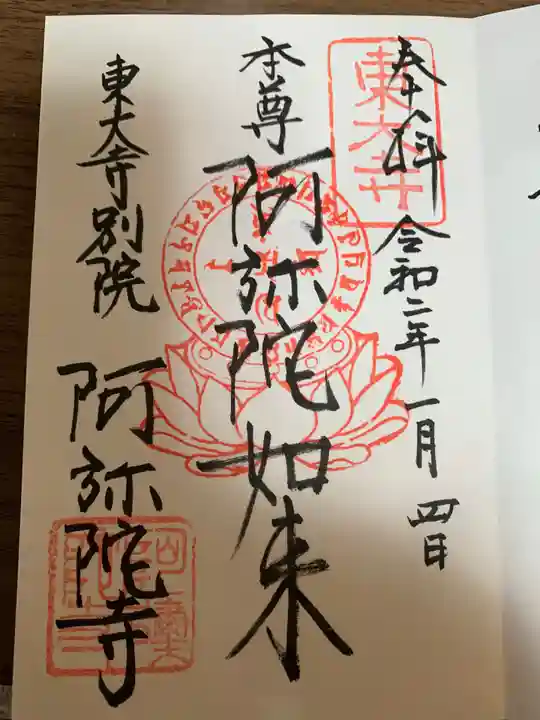 奉拝 令和二年一月四日
東大寺
本尊 阿弥陀如来
東大寺別院 阿弥陀寺